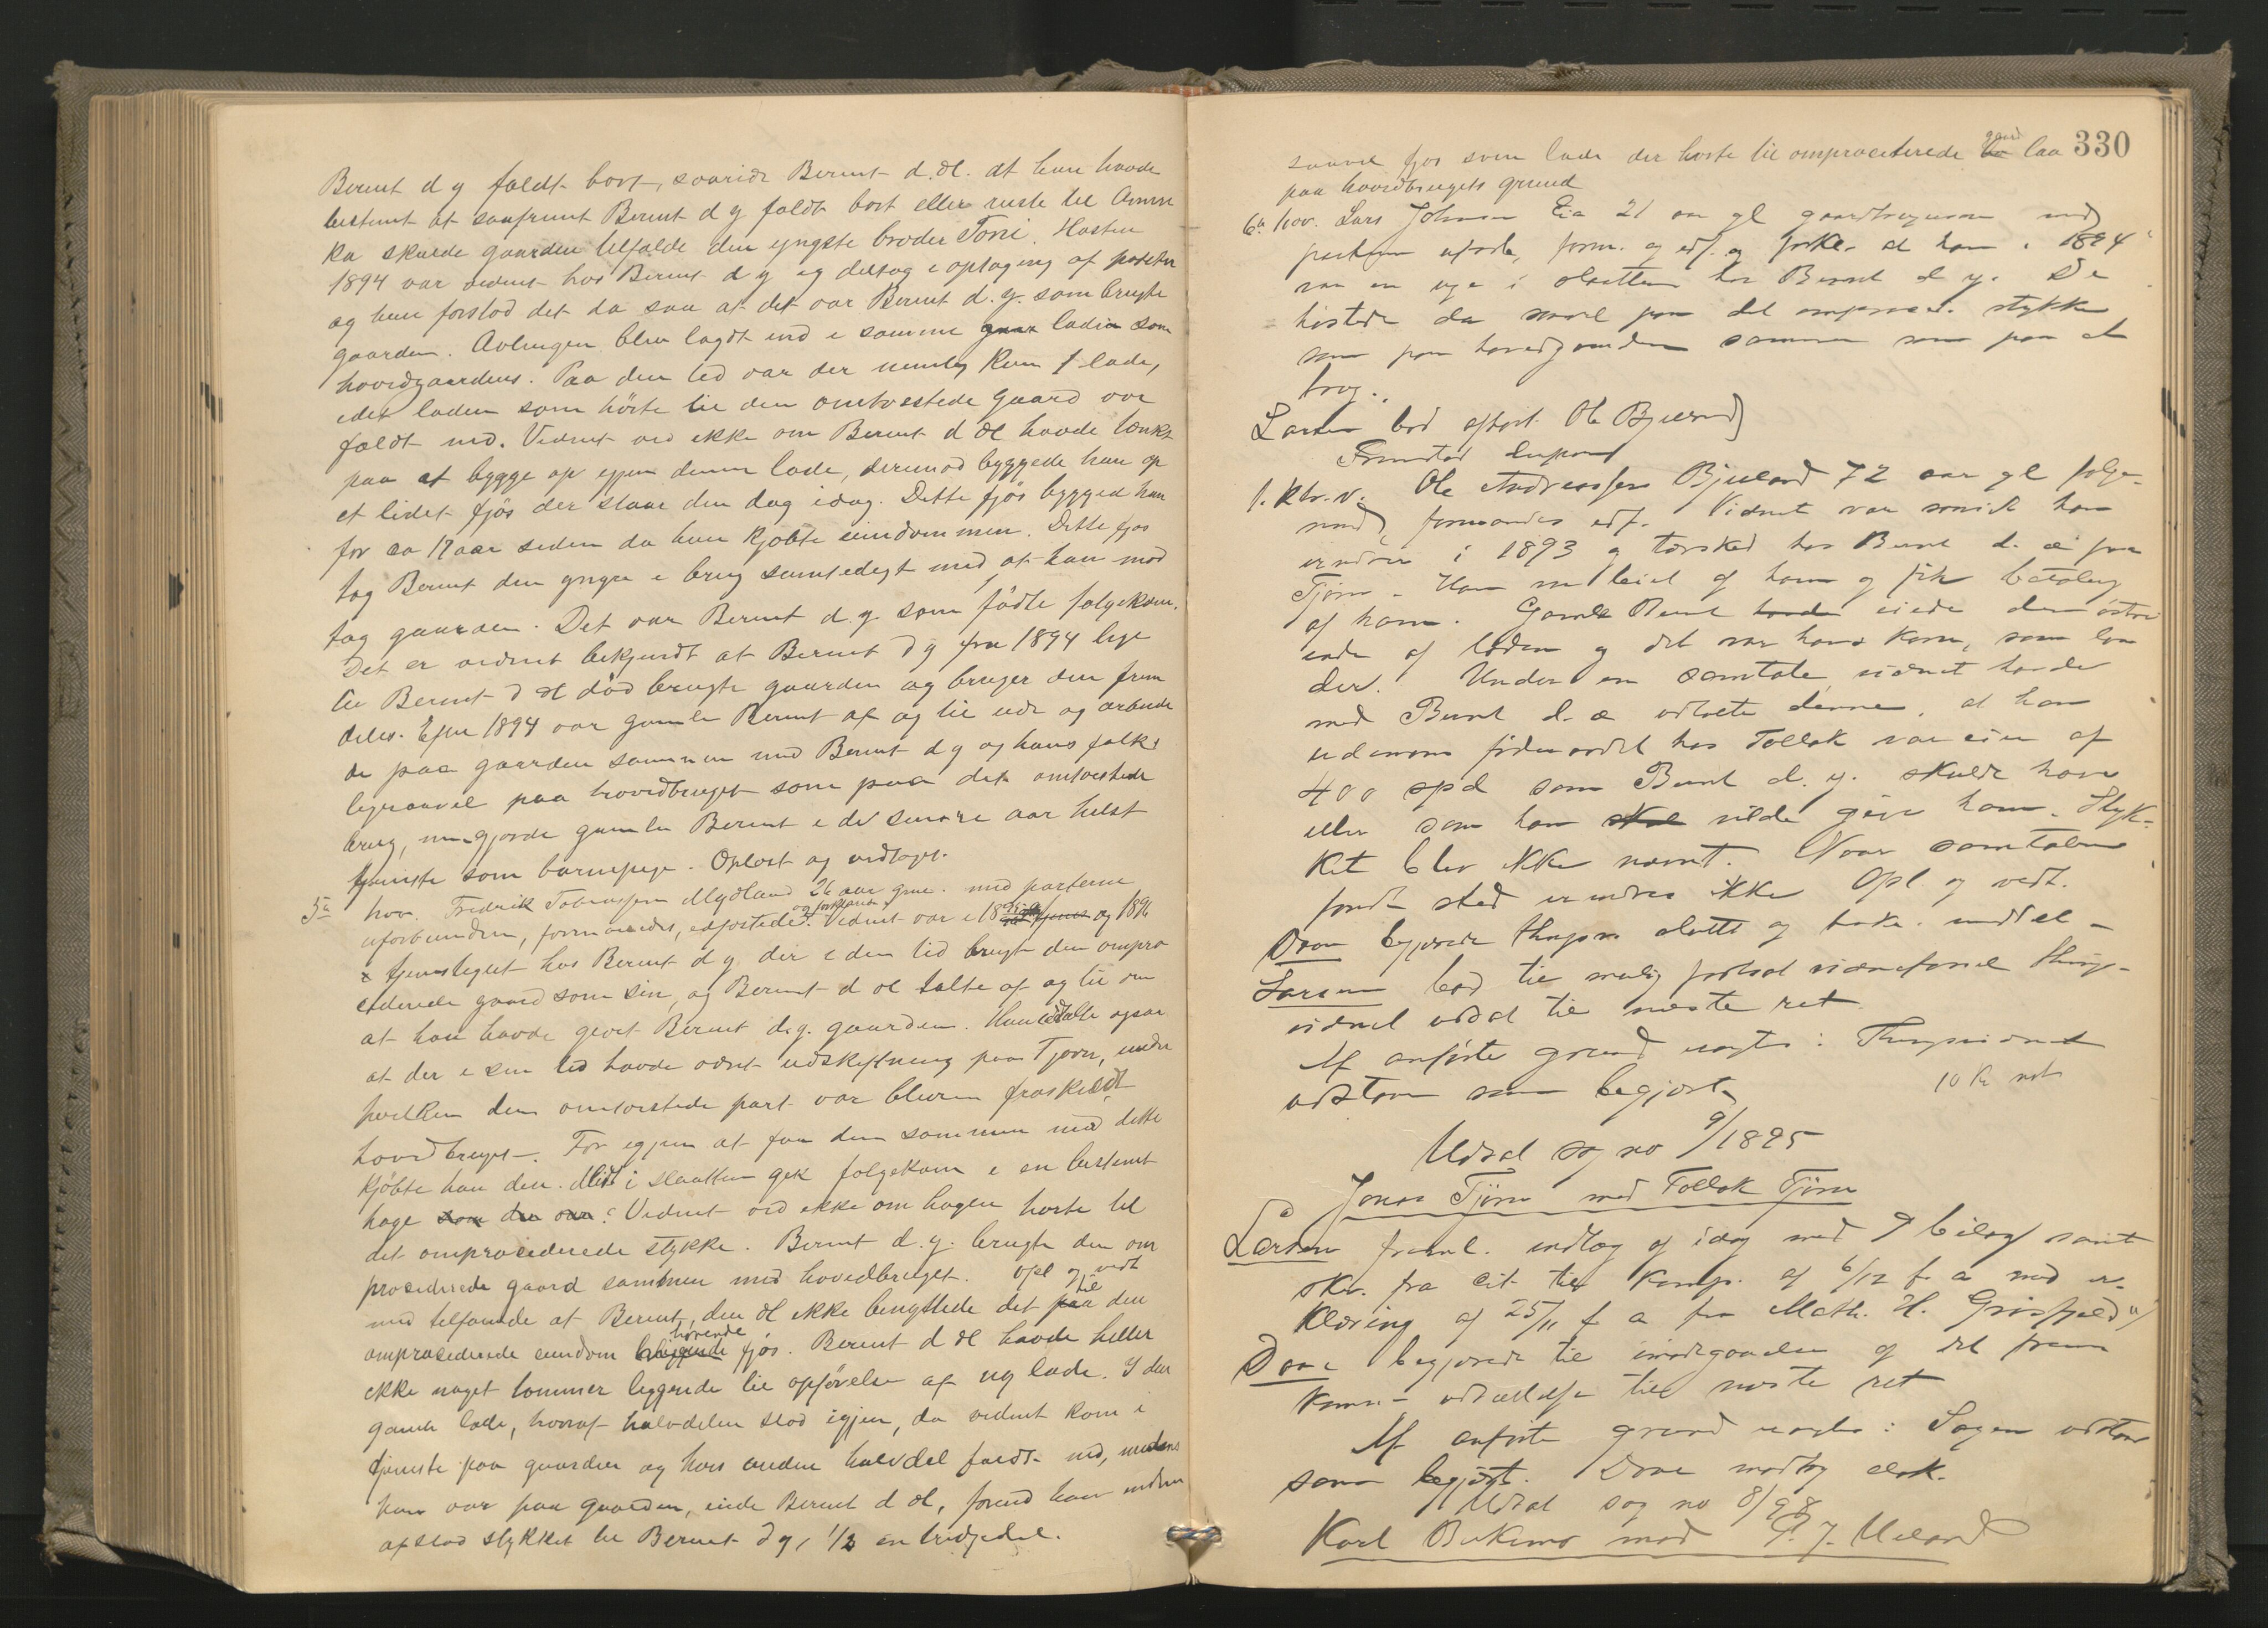 Bernt d y faldt bort, svarede Bernt d. æl. at han havde
bestemt at saafremt Bernt d y faldt bort eller reiste til Ameri
ka skulde gaarden tilfalde den yngste broder Toni. Høsten
1894 var vidnet hos Bernt d y og deltog i optagning af poteter
og han forstod det da saa at det var Bernt d. y. som brugte
gaarden. Avlingen blev lagdt ind i samme laden som
hovedgaardens. Paa den tid var der nemlig kun 1 lade,
idet laden som hørte til den omtvistede gaard var
faldt ned. Vidnet ved ikke om Bernt d æl havde tænkt
paa at bygge op igjen denne lade, derimod byggede han op
et lidet fjøs der staar den dag idag. Dette fjøs bygged han
for ca 17 aar siden da han kjøbte eiendommen. Dette fjøs
tog Bernt den yngre i brug samtidigt med at han mod
tog gaarden. Det var Bernt d. y. som fødte folgekom.
Det er vidnet bekjendt at Bernt d y fra 1894 lige
til Bernt d æl død brugte gaarden og bruger den frem
deles. Efter 1894 var gamle Bernt af og til ude og arbeide
de paa gaarden sammen med Bernt d y og hans folk
ligesaavel paa hovedbruget som paa det omtvistede
brug, men gjorde gamle Bernt i de senere aar helst
tjeneste som barnepige. Oplæst og vedtaget.
5te hov. Fredrik Tobiassen Mydland 26 aar gml. med parterne
uforbunden, formanedes, edfæstedes og forklarede: Vidnet var i 18 og 1896
i tjenstegut hos Bernt d y der i den tid brugte den ompro
cederede gaard som sin, og Bernt d æl talte af og til om
at han havde givet Bernt d. y. gaarden. Han udtalte ogsaa
at der i sin tid havde været udskiftning paa Tjørn, under
hvilken den omtvistede part var bleven fraskildt
hovedbruget. For igjen at faa den sammen med dette
kjøbte han den. Midt i slaatten gik folgekom i en bestemt
hage som den var. Vidnet ved ikke om hagen hørte til
det omprocederede stykke. Bernt d. y. brugte den om
procederede gaard sammen med hovedbruget. Opl og vedt
med tilføiende at Bernt den æl ikke benyttede det til den
omprocederede eiendom hørende fjøs. Bernt d æl havde heller
ikke noget tømmer liggende til opførelse af ny lade. I den
gamle lade, hvoraf halvdelen stod igjen, da vidnet kom i
tjeneste paa gaarden og hvis anden halvdel faldt ned, medens
han var paa gaarden, eiede Bernt d æl, forend han
afstod stykket til Bernt d y, 1/3 en tredjedel.
330
saavel fjøs som lade der hørte til omprocederede gaard laa
paa hovedbrugets grund
6te hov. Lars Johnsen Lia 21 aar gl gaardbrugersøn med
parterne uforb., form. og edf. og forkl. at han i 1894
var en uge i slaatten hos Bernt d y. De
høstede da saavel paa det omproced. stykke
som paa hovedgaarden sammen som paa et
brug.
Larsen bød afhørt Ole Bjuland
1. ktr. v. Ole Andreassen Bjuland 72 aar gl folge-
mand, formanedes edf. Vidnet var saavidt han
erindrer i 1893 og tærsked hos Bernt d. æ paa
Tjørn. Han var leiet af ham og fik betaling
af ham. Gamle Bernt havde eiede den østre
ende af laden og det var hans korn, som laa
der. Under en samtale vidnet havde
med Bernt d. æ udtalte denne, at han
udenom fødeordet hos Tollak var eier af
400 spd som Bernt d. y. skulde have
eller som han skal vilde give ham. Styk-
ket blev ikke nævnt. Naar samtalen
fandt sted erindres ikke Opl. og vedt.
Daae begjærede thingsv. sluttet og beskr. meddelt
Larsen bød til mulig fortsat vidneførsel thing-
vidnet udsat til næste ret
Af anførte grund eragtes: Thingvidnet
udstaar som begjært. 10 Kr
Udsat sag no 9/1895
Jonas Tjørn mod Tollak Tjørn
Larsen freml. indlæg af idag med 9 bilag samt
skr. fra cit til komp. af 6/12 f a med er-
klæring af 25/11 f a fra Math. H. Grisfjeld
Daae begjærede til imødegaaelse af det frem
komne udsættelse til næste ret
Af anførte grund eragtes: Sagen udstaar
som begjært. Daae modtog dok.
Udsat sag no 8/98
Karl Birkemo mod P. J. Ueland